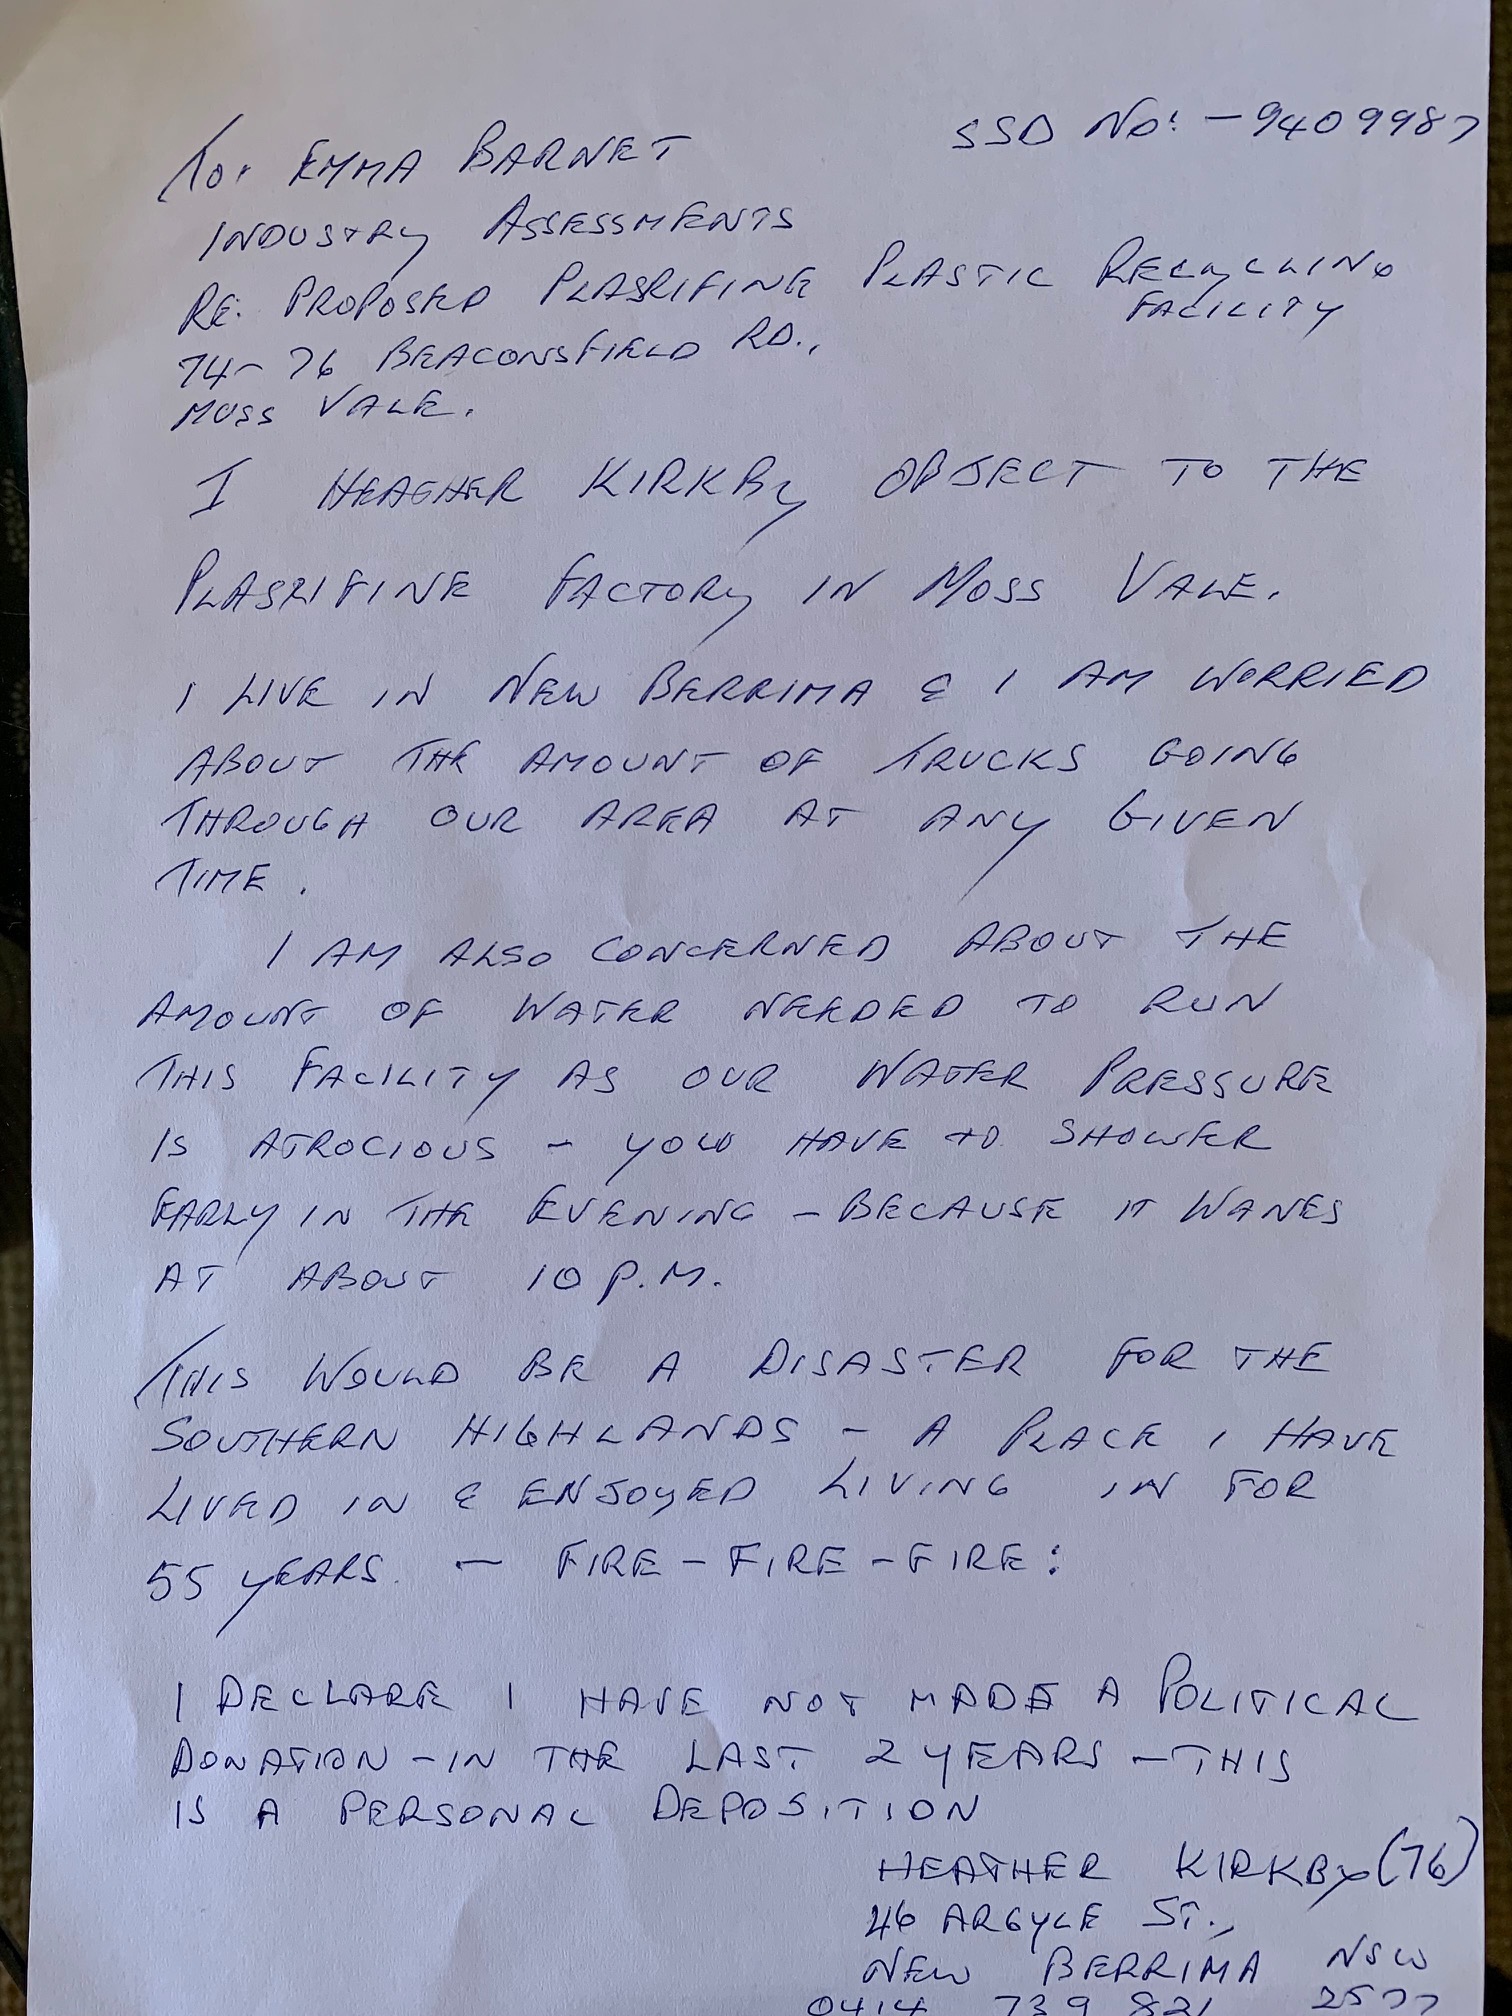 SSD No: - 9409987
To: EMMA BARNET
INDUSTRY ASSESSMENTS
RE: PROPOSED PLASRIFINE PLASTIC RECYCLING
FACILITY
74-76 BEACONSFIELD RD.,
MOSS VALE.
I HEATHER KIRKBY OBJECT TO THE
PLASRIFINE FACTORY IN MOSS VALE.
I LIVE IN NEW BERRIMA & I AM WORRIED
ABOUT THE AMOUNT OF TRUCKS GOING
THROUGH OUR AREA AT ANY GIVEN
TIME.
I AM ALSO CONCERNED ABOUT THE
AMOUNT OF WATER NEEDED TO RUN
THIS FACILITY AS OUR WATER PRESSURE
IS ATROCIOUS - YOU HAVE TO SHOWER
EARLY IN THE EVENING - BECAUSE IT WANES
AT ABOUT 10 P.M.
THIS WOULD BE A DISASTER FOR THE
SOUTHERN HIGHLANDS - A PLACE I HAVE
LIVED IN & ENJOYED LIVING IN FOR
55 YEARS. - FIRE - FIRE - FIRE:
I DECLARE I HAVE NOT MADE A POLITICAL
DONATION - IN THE LAST 2 YEARS - THIS
IS A PERSONAL DEPOSITION
HEATHER KIRKBY (76)
46 ARGYLE ST.,
NEW BERRIMA NSW
0414 739 821 2577